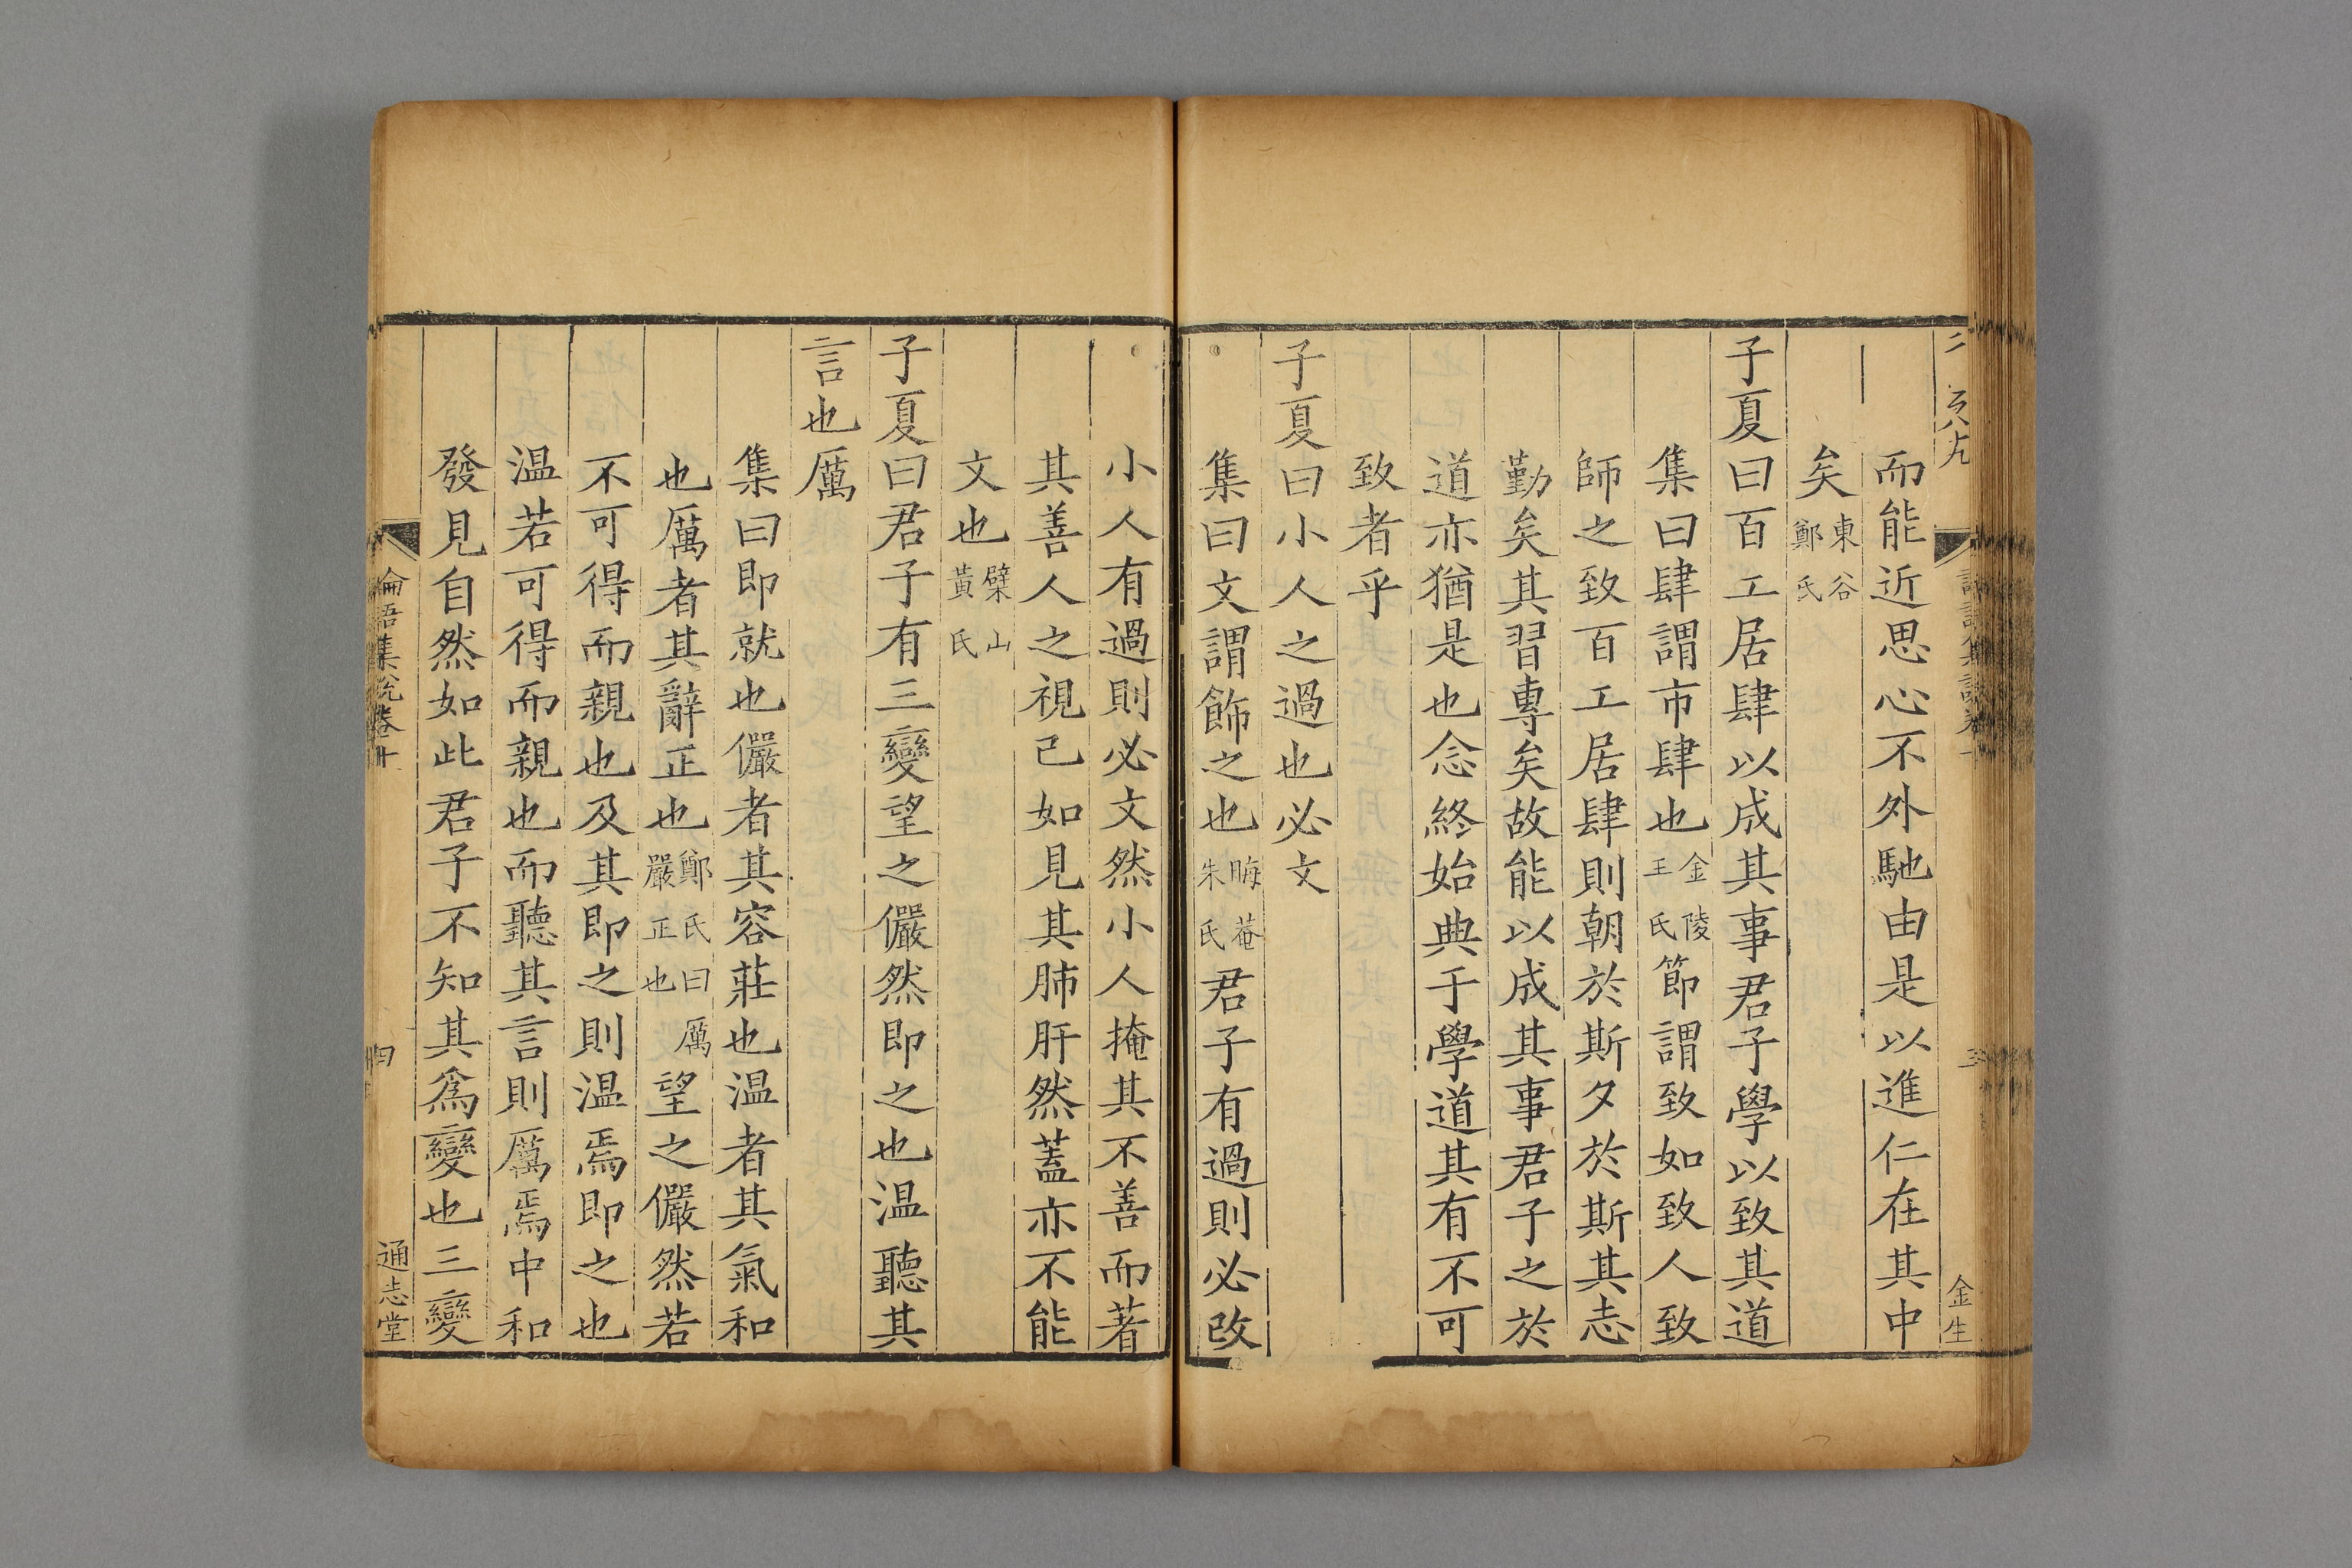 而能近思心不外馳由是以進仁在其中
矣東谷鄭氏
子夏曰百工居肆以成其事君子學以致其道
集曰肆謂市肆也金陵王氏節謂致如致人致
師之致百工居肆則朝於斯夕於斯其志
勤矣其習專矣故能以成其事君子之於
道亦猶是也念終始典于學道其有不可
致者乎
子夏曰小人之過也必文
集曰文謂飾之也晦菴朱氏君子有過則必改
小人有過則必文然小人掩其不善而著
其善人之視己如見其肺肝然蓋亦不能
文也檗山黃氏
子夏曰君子有三變望之儼然即之也温聽其
言也厲
集曰即就也儼者其容莊也温者其氣和
也厲者其辭正也鄭氏曰厲嚴正也望之儼然若
不可得而親也及其即之則温焉即之也
温若可得而親也而聽其言則厲焉中和
發見自然如此君子不知其爲變也三變
論語集說卷十
四
通志堂
三
金生